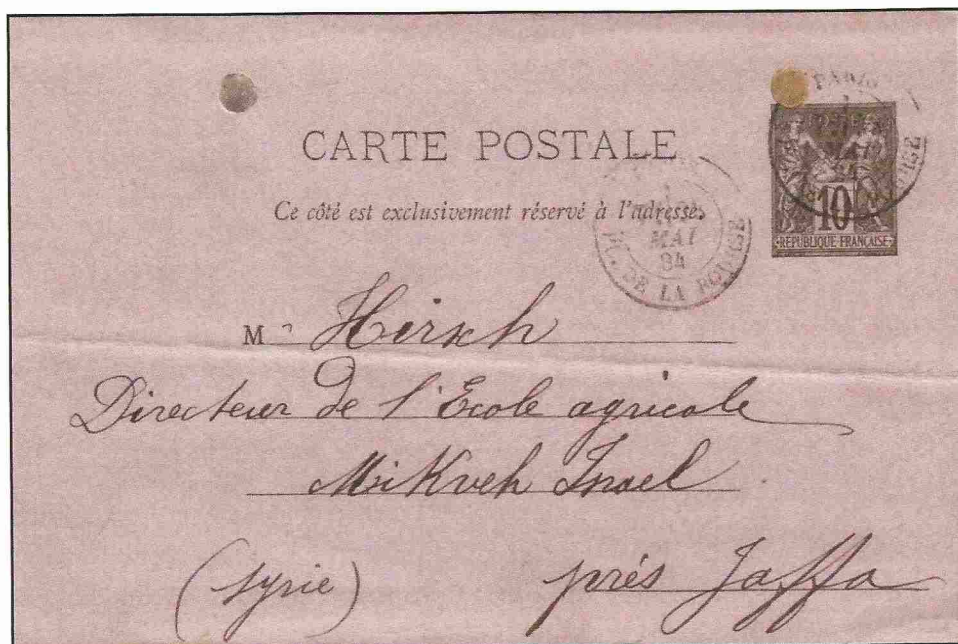 CARTE POSTALE
Ce côté est exclusivement réservé à l'adresse.
PARIS
10
REPUBLIQUE FRANÇAISE
MAI
84
DE LA BOURSE
M r Hirsch
Directeur de l'Ecole agricole
Mikveh Israel
(Syrie) près Jaffa